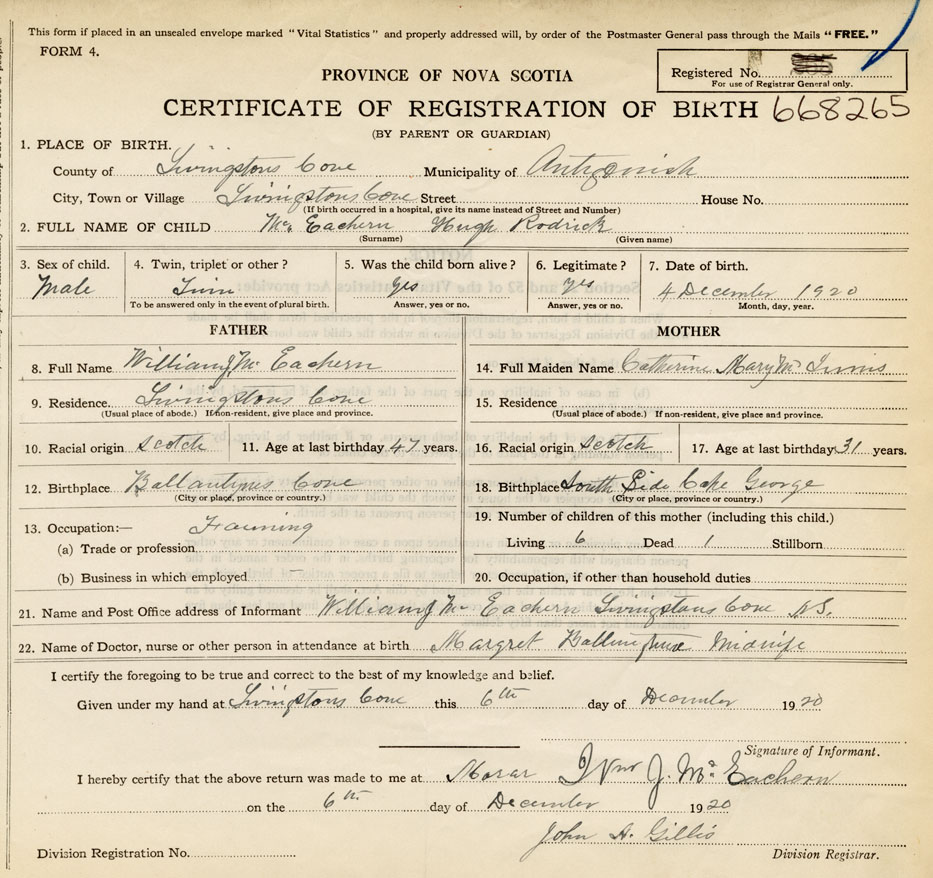 This form if placed in an unsealed envelope marked "Vital Statistics" and properly addressed will, by order of the Postmaster General pass through the Mails "FREE."
FORM 4.
Registered No.
For use of Registrar General only.
PROVINCE OF NOVA SCOTIA
CERTIFICATE OF REGISTRATION OF BIRTH 668265
(BY PARENT OR GUARDIAN)
1. PLACE OF BIRTH.
County of Livingstons Cove Municipality of Antigonish
City, Town or Village Livingstons Cove Street House No.
(If birth occurred in a hospital, give its name instead of Street and Number)
2. FULL NAME OF CHILD Mc Eachern Hugh Rodrick
(Surname) (Given name)
3. Sex of child. 4. Twin, triplet or other? 5. Was the child born alive? 6. Legitimate? 7. Date of birth.
Male Twin Yes Yes 4 December 1920
To be answered only in the event of plural birth. Answer, yes or no. Answer, yes or no. Month, day, year.
FATHER MOTHER
8. Full Name William J Mc Eachern 14. Full Maiden Name Catherine Mary Mc Innis
9. Residence Livingstons Cove 15. Residence
(Usual place of abode.) If non-resident, give place and province. (Usual place of abode.) If non-resident, give place and province.
10. Racial origin Scotch 11. Age at last birthday 47 years. 16. Racial origin Scotch 17. Age at last birthday 31 years.
12. Birthplace Ballantynes Cove 18. Birthplace South Side Cape George
(City or place, province or country.) (City or place, province or country.)
13. Occupation:— Farming 19. Number of children of this mother (including this child.)
(a) Trade or profession Living 6 Dead 1 Stillborn
(b) Business in which employed 20. Occupation, if other than household duties
21. Name and Post Office address of Informant William J Mc Eachern Livingstons Cove N.S.
22. Name of Doctor, nurse or other person in attendance at birth Margret Midwife
I certify the foregoing to be true and correct to the best of my knowledge and belief.
Given under my hand at Livingstons Cove this 6th day of December 1920
Signature of Informant.
I hereby certify that the above return was made to me at Morar Wm J. Mc Eachern
on the 6th day of December 1920
John A. Gillis
Division Registration No. Division Registrar.